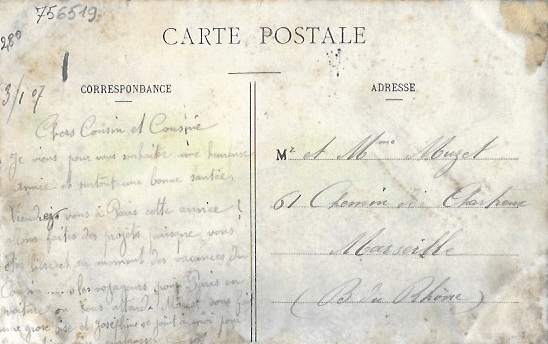 756519
280
CARTE POSTALE
3/1 07
CORRESPONDANCE
ADRESSE
Chers Cousin et Cousine
Je viens pour vous souhaiter une heureuse
année et surtout une bonne santée.
Viendrez vous à Paris cette année !
vous faites des projets puisque vous
êtes au moment des vacances du
les voyageurs pour Paris en
voiture on vous attend. vous fait
une grosse bise et Joséphine se joint à pour
Mr et Mme Muzet
61 Chemin des Chartreux
Marseille
(B du Rhône)